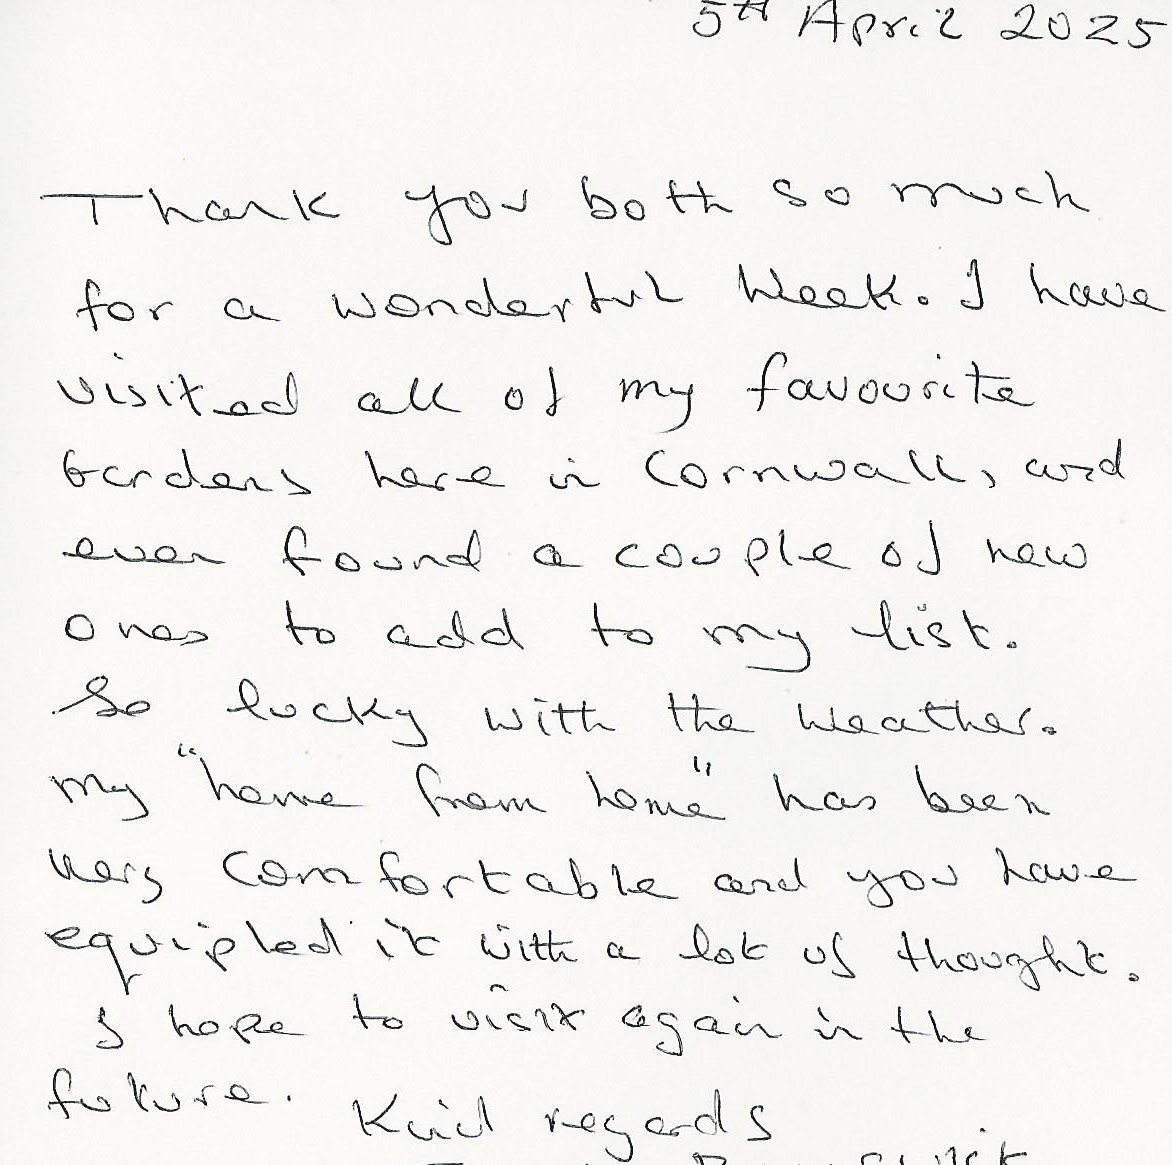 5th April 2025
Thank you both so much
for a wonderful week. I have
visited all of my favourite
Gardens here in Cornwall, and
even found a couple of new
ones to add to my list.
So lucky with the weather.
My "home from home" has been
very comfortable and you have
equipped it with a lot of thought.
I hope to visit again in the
future.
Kind regards